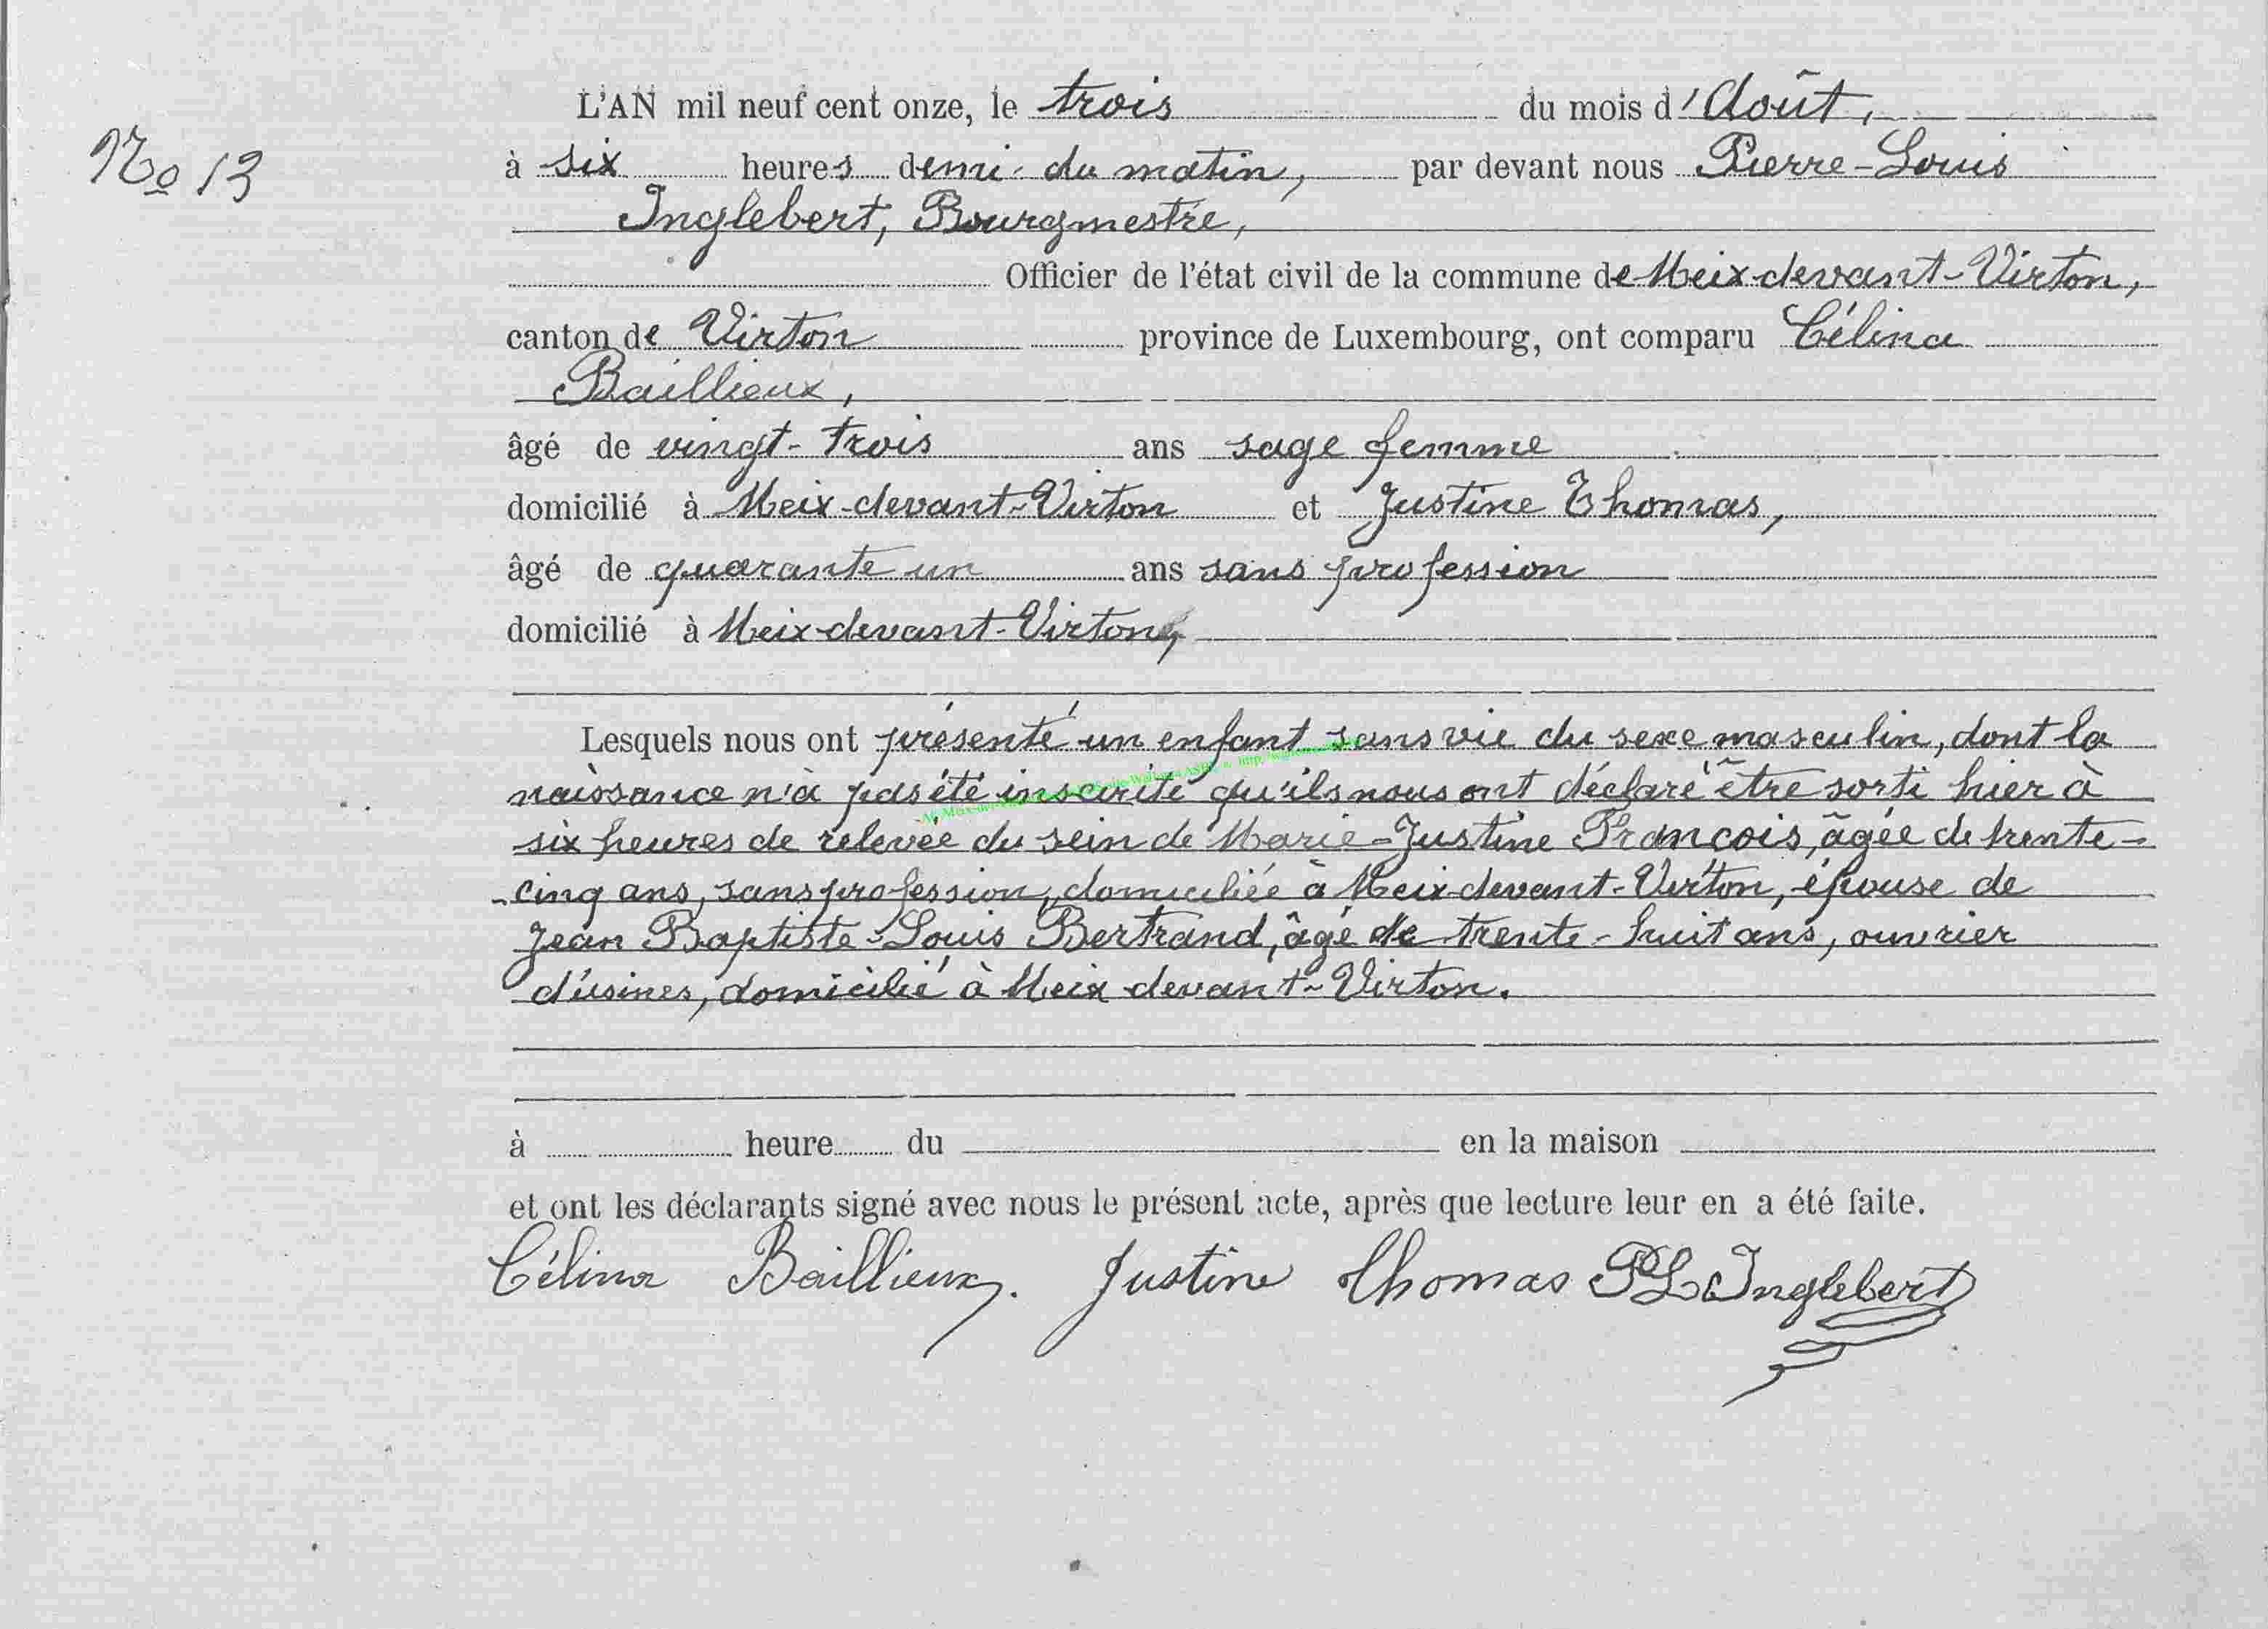 L'AN mil neuf cent onze, le trois du mois d'Août,
No 13
à six heures demi du matin, par devant nous Pierre-Louis
Inglebert, Bourgmestre,
Officier de l'état civil de la commune de Meix-devant-Virton,
canton de Virton province de Luxembourg, ont comparu Célina
Baillieux,
âgé de vingt-trois ans sage femme
domicilié à Meix-devant-Virton et Justine Thomas,
âgé de quarante un ans sans profession
domicilié à Meix-devant-Virton,
Lesquels nous ont présenté un enfant sans vie du sexe masculin, dont la
naissance n'a pas été inscrite qu'ils nous ont déclaré être sorti hier à
six heures de relevée du sein de Marie-Justine François, âgée de trente-
-cinq ans, sans profession, domiciliée à Meix-devant-Virton, épouse de
Jean Baptiste-Louis Bertrand, âgé de trente-huit ans, ouvrier
d'usines, domicilié à Meix devant-Virton.
à heure du en la maison
et ont les déclarants signé avec nous le présent acte, après que lecture leur en a été faite.
Célina Baillieux. Justine Thomas PL Inglebert